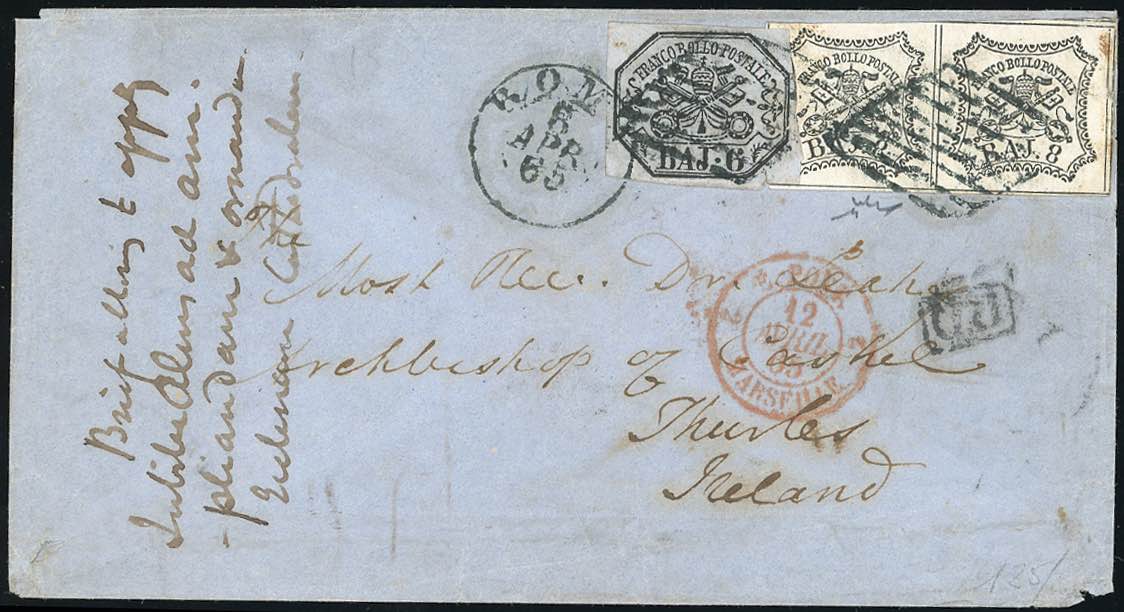 FRANCO BOLLO POSTALE
BAJ. 6
FRANCO BOLLO POSTALE
BAJ. 8
FRANCO BOLLO POSTALE
BAJ. 8
ROMA
8
APR
65
Most Rev. Dr. Leahy
Archbishop of Cashel
Thurles
Ireland
ROME
12
AVRIL
65
MARSEILLE
2
2
P.D.
Brief allowing to apply
Jubilee Alms ad am-
-pliandam & ornandam
Ecclesiam Cathedralem
125/